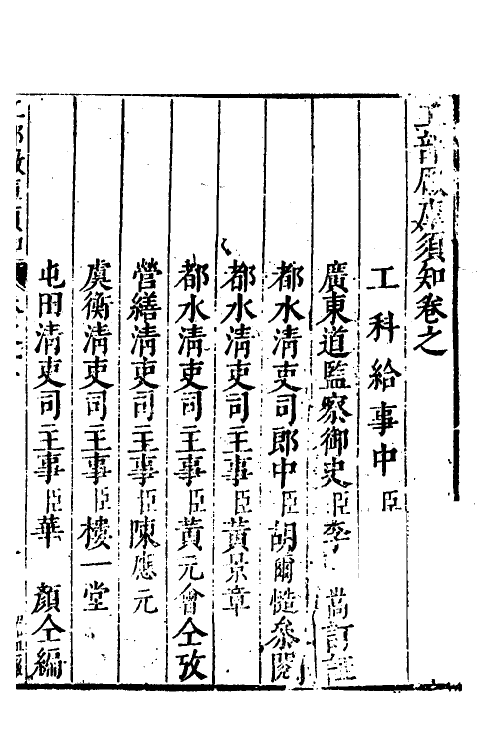 工部厰庫須知卷之
工科給事中臣
廣東道監察御史臣李 嵩訂註
都水淸吏司郎中臣胡爾慥叅閱
都水淸吏司主事臣黃景章
都水淸吏司主事臣黃元會仝攷
營繕淸吏司主事臣陳應元
虞衡淸吏司主事臣樓一堂
屯田淸吏司主事臣華 顏仝編